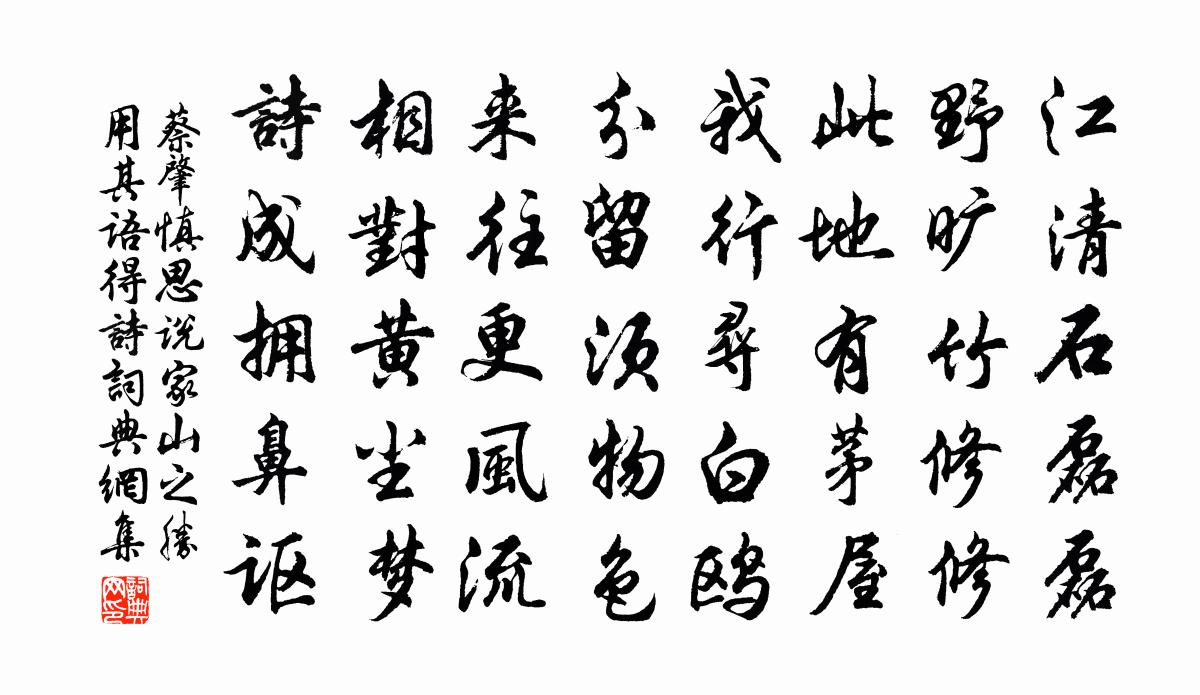 江清石磊磊
野旷竹修修
此地有茅屋
我行尋白鸥
分留须物色
来往更風流
相對黄尘梦
詩成拥鼻讴
蔡肇慎思说家山之勝
用其语得詩詞典網集
詞典网印